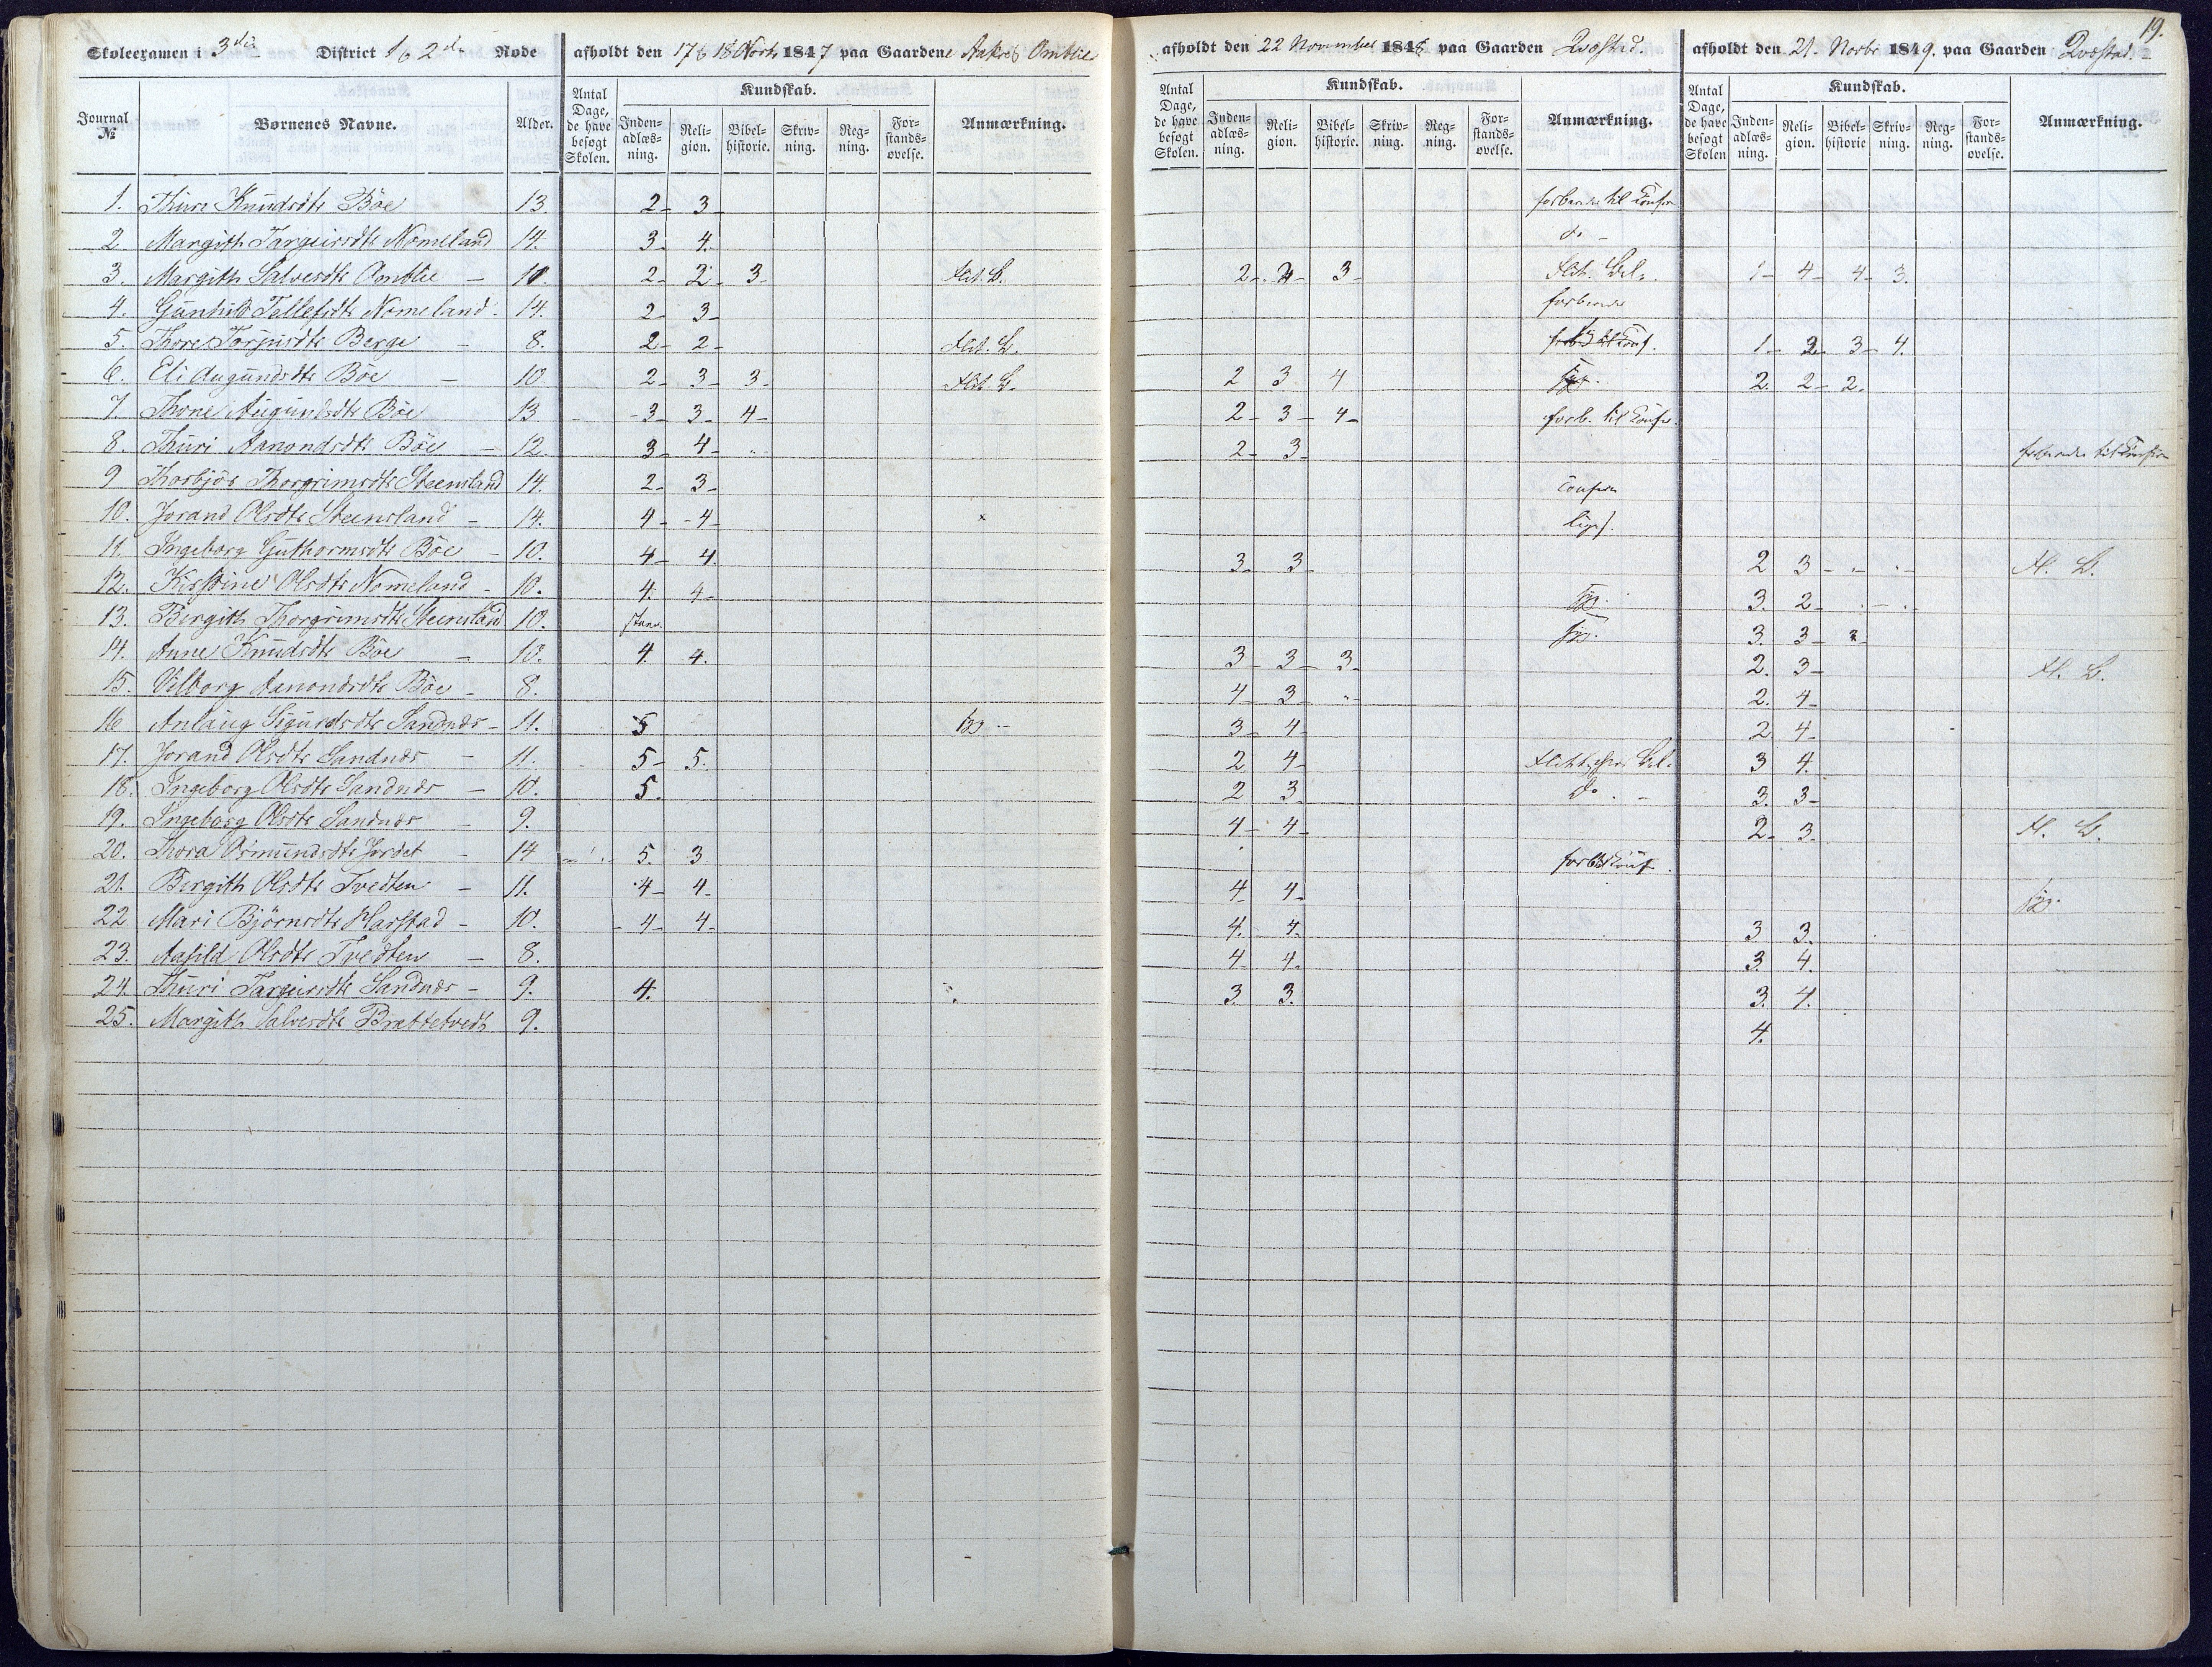 19.
Skoleexamen i 3die District 1 & 2den Rode afholdt den 17 & 18 Novbr 1847 paa Gaardene Omblie afholdt den 22 November 1848 paa Gaarden Qvæstad. afholdt den 21. Novbr 1849. paa Gaarden Qvæstad.
Journal № Børnenes Navne. Alder. Antal Dage, de have besøgt Skolen. Kundskab. Inden-adlæs-ning. Reli-gion. Bibel-historie. Skriv-ning. Reg-ning. For-stands-øvelse. Anmærkning.
Antal Dage, de have besøgt Skolen. Kundskab. Inden-adlæs-ning. Reli-gion. Bibel-historie. Skriv-ning. Reg-ning. For-stands-øvelse. Anmærkning.
Antal Dage, de have besøgt Skolen Kundskab. Inden-adlæs-ning. Reli-gion. Bibel-historie Skriv-ning. Reg-ning. For-stands-øvelse. Anmærkning.
1. Thure Knudsdtr Böe 13. 2- 3- til Confir
2. Margith Targeirsdtr Nomeland 14. 3. 4. do -
3. Margith Salvesdtr Omblie - 10. 2- 2- 3- Flit. G. 2- 2- 3- Flit. 1- 4- 4- 3.
4. Gunhild Tallefsdtr Nomeland. 14. 2- 3-
5. Thore Torjusdtr Berge - 8. 2- 2- Flit. G. 1- 2- 3- 4.
6. Eli Augundsdtr Böe - 10 2- 3- 3- Flit G. 2 3 4 syg. 2. 2- 2.
7. Thone Augundsdtr Böe 13. 3- 3- 4- 2- 3- 4- forb. til Confir.
8. Thuri Aanondsdtr Böe - 12. 3- 4- 2- 3- til Confir
9 Thorbjör Thorgrimsdtr Steensland 14. 2- 3- Confir
10. Jorand Olsdtr Steensland - 14. 4- 4- x
11. Ingeborg Guthormsdtr Böe - 10. 4- 4. 3- 3- 2 3- Fl. G.
12. Olsdtr Nomeland - 10. 4. 4- syg. 3. 2-
13. Bergith Thorgrimsdtr Steensland 10. stav. syg. 3. 3- 3-
14. Anne Knudsdtr Böe - 10. 4. 4. 3- 3- 3- 2. 3- Fl. G.
15. Vilborg Aanondsdtr Böe - 8. 4- 3- 2. 4-
16 Anlaug Sigurdsdtr Sandnæs - 11. 5 syg - 3- 4- 2 4-
17. Jorand Olsdtr Sandnæs - 11. 5- 5. 2. 4- 3 4.
18. Ingeborg Olsdtr Sandnæs - 10. 5. 2 3 Do. - 3. 3-
19. Ingeborg Olsdtr Sandnæs - 9. 4- 4- 2- 3. Fl. G.
20. Thora Osmundsdtr Jordet - 14 5. 3
21. Bergith Olsdtr Tvedten - 11. 4- 4- 4- 4- syg.
22. Mari Björnsdtr Harstad - 10. 4- 4- 4. 4. 3 3.
23. Aasild Olsdtr Tvedten - 8. 4- 4. 3. 4.
24. Thuri Targeirsdtr Sandnæs - 9. 4. 3. 3. 3. 4.
25. Margith Salvesdtr Brattetvedt 9. 4.